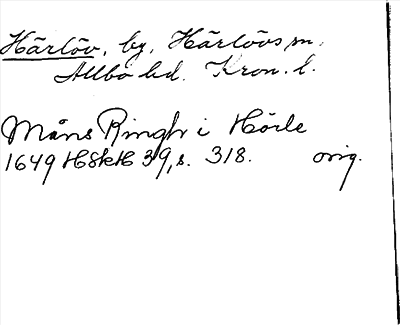 Härlöv, by, Härlövs sn.
Allbo hd. Kron. l.
Måns Ringh i Hörle
1649 HSkH 39, s. 318. orig.